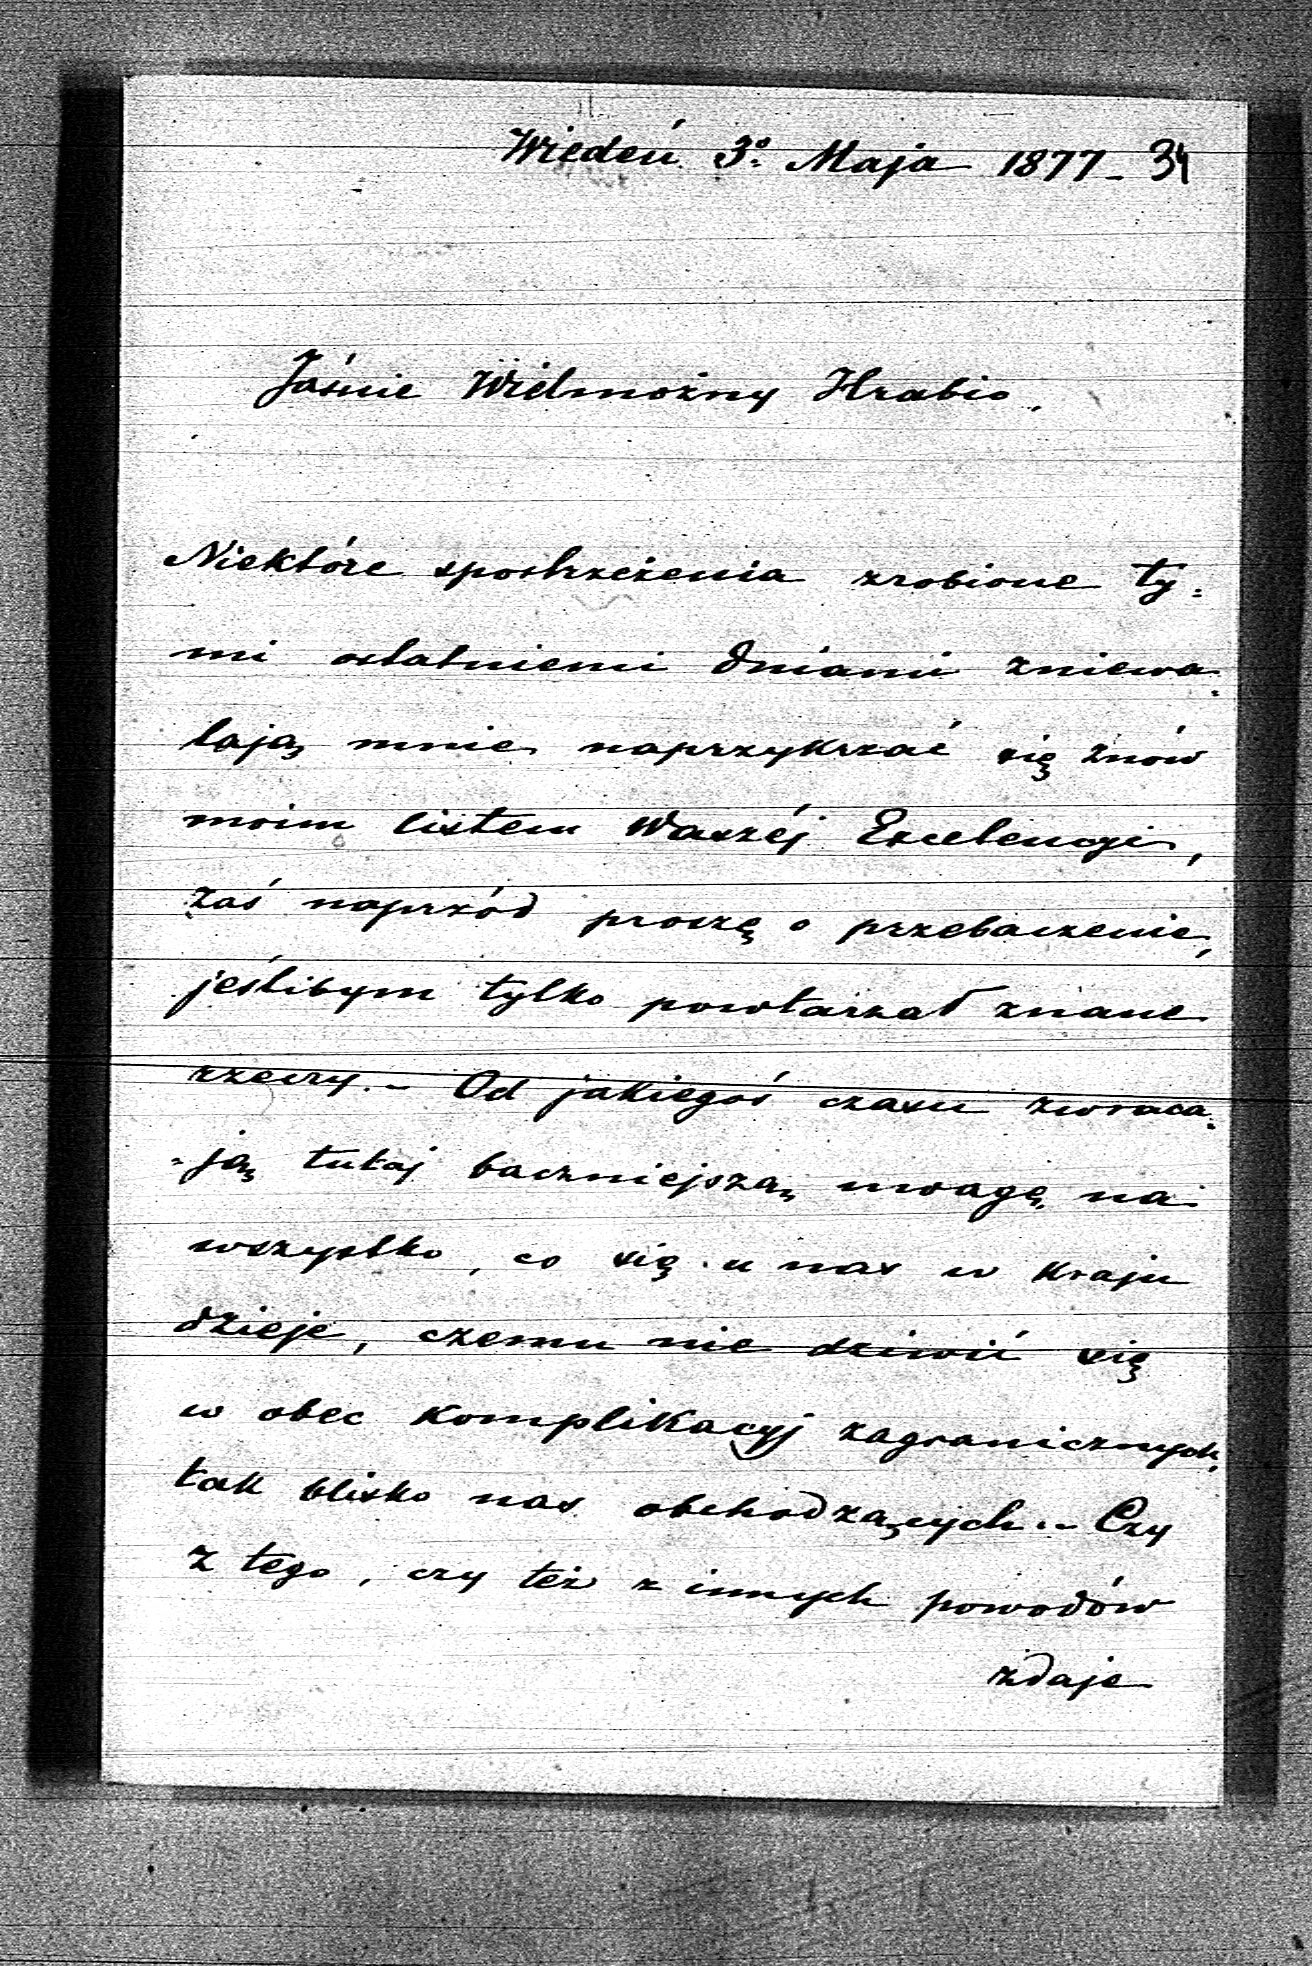 Wiedeń 3º Maja 1877 - 34
Jaśnie Wielmożny Hrabio.
Niektóre spostrzeżenia zrobione ty=
mi ostatniemi dniami zniewa=
lają mnie naprzykrzać się znów
moim listem Waszéj Excelencyi,
zaś naprzód proszę o przebaczenie,
jeślibym tylko powtarzał znane
rzeczy. - Od jakiegoś czasu zwraca=
=ją tutaj baczniejszą uwagę na
wszystko, co się u nas w kraju
dzieje, czemu nie dziwić się
w obec komplikacyj zagranicznych,
tak blisko nas obchodzących. - Czy
z tego, czy też z innych powodów
zdaje